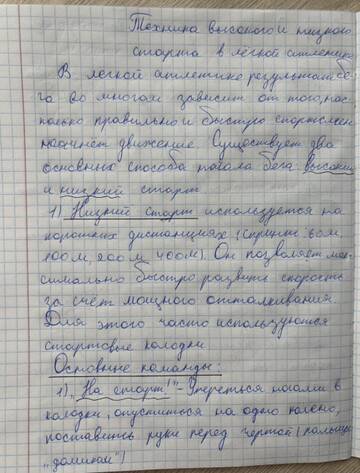 Техника высокого и низкого
старта в лёгкой атлетике
В легкой атлетике результат бе-
га во многом зависит от того, нас-
только правильно и быстро спортсмен
начнёт движение. Существует два
основных способа начала бега высокий
и низкий старт
1) Низкий старт используется на
коротких дистанциях (спринт: 60м
100м, 200м, 400м). Он позволяет мак-
симально быстро развить скорость
за счет мощного отталкивания
Для этого часто используются
стартовые колодки
Основные команды:
1) „На старт!" - Упереться ногами в
колодки, опуститься на одно колено,
поставить руки перед чертой (пальцы
„домиком")